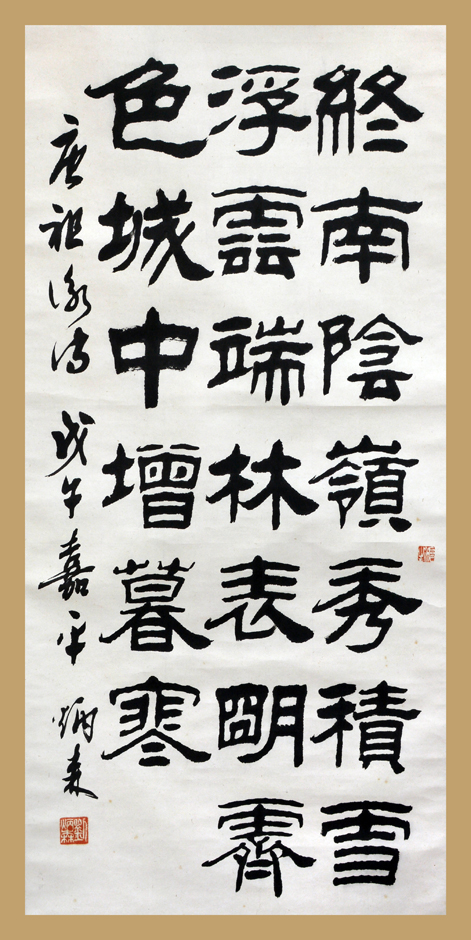 終南陰嶺秀積雪
浮雲端林表明霽
色城中增暮寒
唐祖詠詩 戊午嘉平 炳森